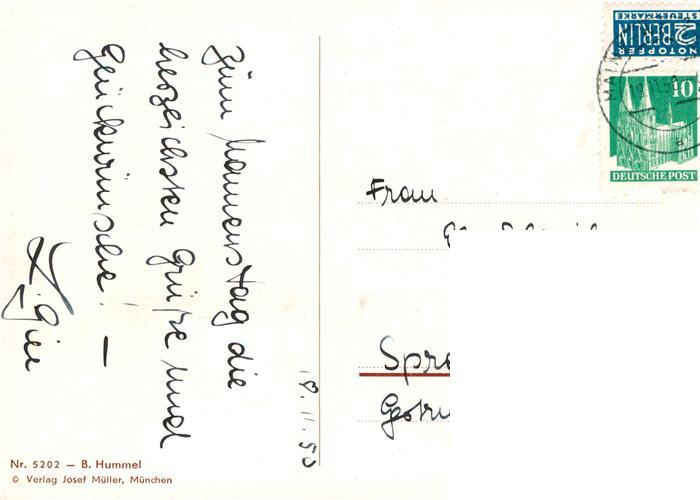 Zum Namenstag die
herzlichsten Grüße und
Glückwünsche! —
18.11.50
Nr. 5202 — B. Hummel
© Verlag Josef Müller, München
NOTOPFER
2 BERLIN
STEUERMARKE
10
DEUTSCHE POST
Frau